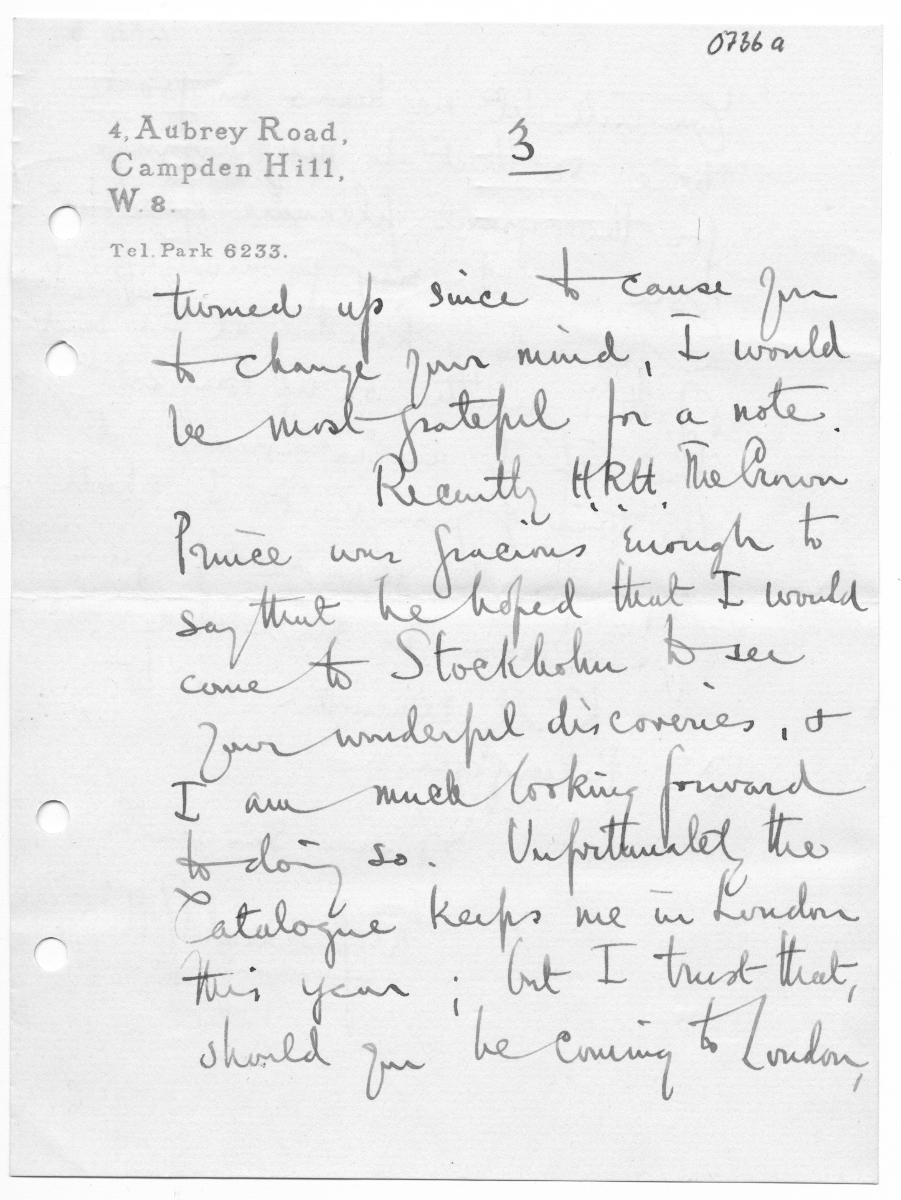 0736a
4, Aubrey Road,
Campden Hill,
W. 8.
Tel. Park 6233.
3
turned up since to cause you
to change your mind, I would
be most grateful for a note.
Recently H.R.H. The Crown
Prince was gracious enough to
say that he hoped that I would
come to Stockholm to see
your wonderful discoveries, &
I am much looking forward
to doing so. Unfortunately the
Catalogue keeps me in London
this year; but I trust that,
should you be coming to London,